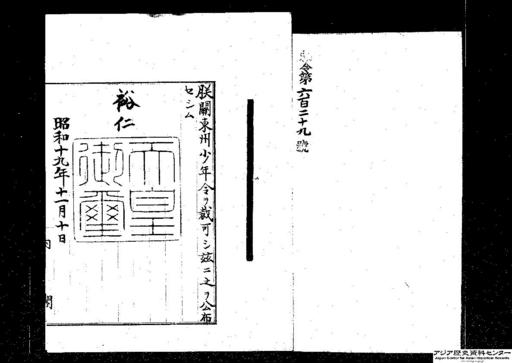 令第六百二十九號
朕關東州少年令ヲ裁可シ茲ニ之ヲ公布
セシム
裕仁
天皇
御璽
昭和十九年十一月十日
内
閣
アジア歴史資料センター
Japan Center for Asian Historical Records